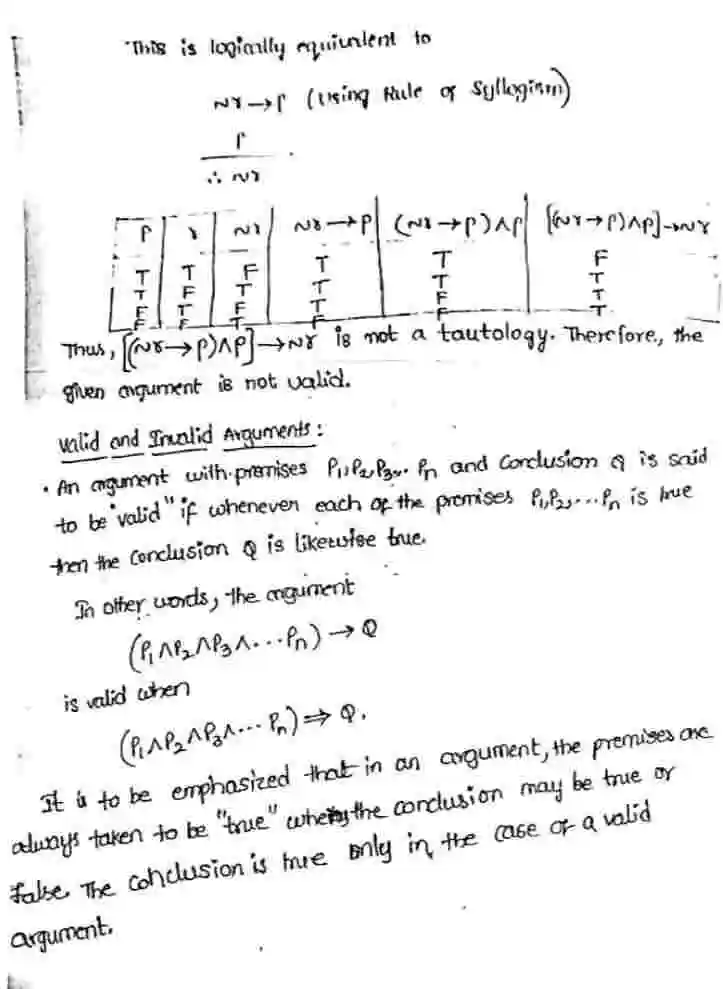 This is logically equivalent to
~r → p (Using Rule of Syllogism)
p
∴ ~r
p | r | ~r | ~r → p | (~r → p) ∧ p | [(~r → p) ∧ p] → ~r
T | T | F | T | T | F
T | F | T | T | T | T
F | T | F | T | F | T
F | F | T | F | F | T
Thus, [(~r → p) ∧ p] → ~r is not a tautology. Therefore, the
given argument is not valid.
Valid and Invalid Arguments :
• An argument with premises P₁, P₂, P₃, .. Pₙ and Conclusion Q is said
to be "valid" if whenever each of the premises P₁, P₂, ... Pₙ is true
then the Conclusion Q is likewise true.
In other words, the argument
(P₁ ∧ P₂ ∧ P₃ ∧ ... Pₙ) → Q
is valid when
(P₁ ∧ P₂ ∧ P₃ ∧ ... Pₙ) ⇒ Q.
It is to be emphasized that in an argument, the premises are
always taken to be "true" the conclusion may be true or
false. The conclusion is true only in the case of a valid
argument.